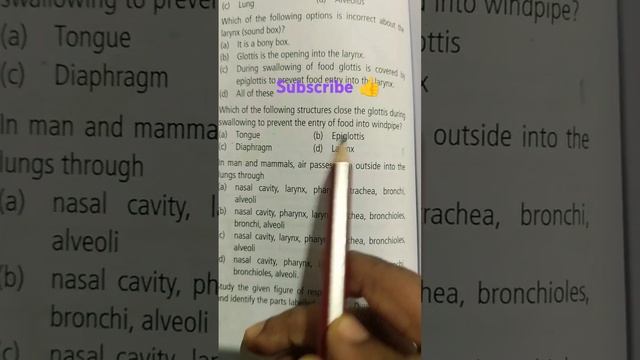 (c) Lung (d) Alveolus
Which of the following options is incorrect about the
larynx (sound box)?
(a) It is a bony box.
(b) Glottis is the opening into the larynx.
(c) During swallowing of food glottis is covered by
epiglottis to prevent food entry into the larynx.
(d) All of these
Subscribe 👍
Which of the following structures close the glottis during
swallowing to prevent the entry of food into windpipe?
(a) Tongue (b) Epiglottis
(c) Diaphragm (d) Larynx
In man and mammals, air passes outside into the
lungs through
(a) nasal cavity, larynx, trachea, bronchi,
alveoli
(b) nasal cavity, pharynx, trachea, bronchioles,
bronchi, alveoli
(c) nasal cavity, larynx, bronchioles,
alveoli
(d) nasal cavity, pharynx,
bronchioles, alveoli.
Study the given figure of
and identify the parts
swallowing to prevent
(a) Tongue
(c) Diaphragm
In man and mamma
lungs through
(a) nasal cavity,
alveoli
(b) nasal cavity, ph
bronchi, alveoli
(c) nasal cavity
into windpipe?
ottis
outside into the
rachea, bronchi,
hea, bronchioles,